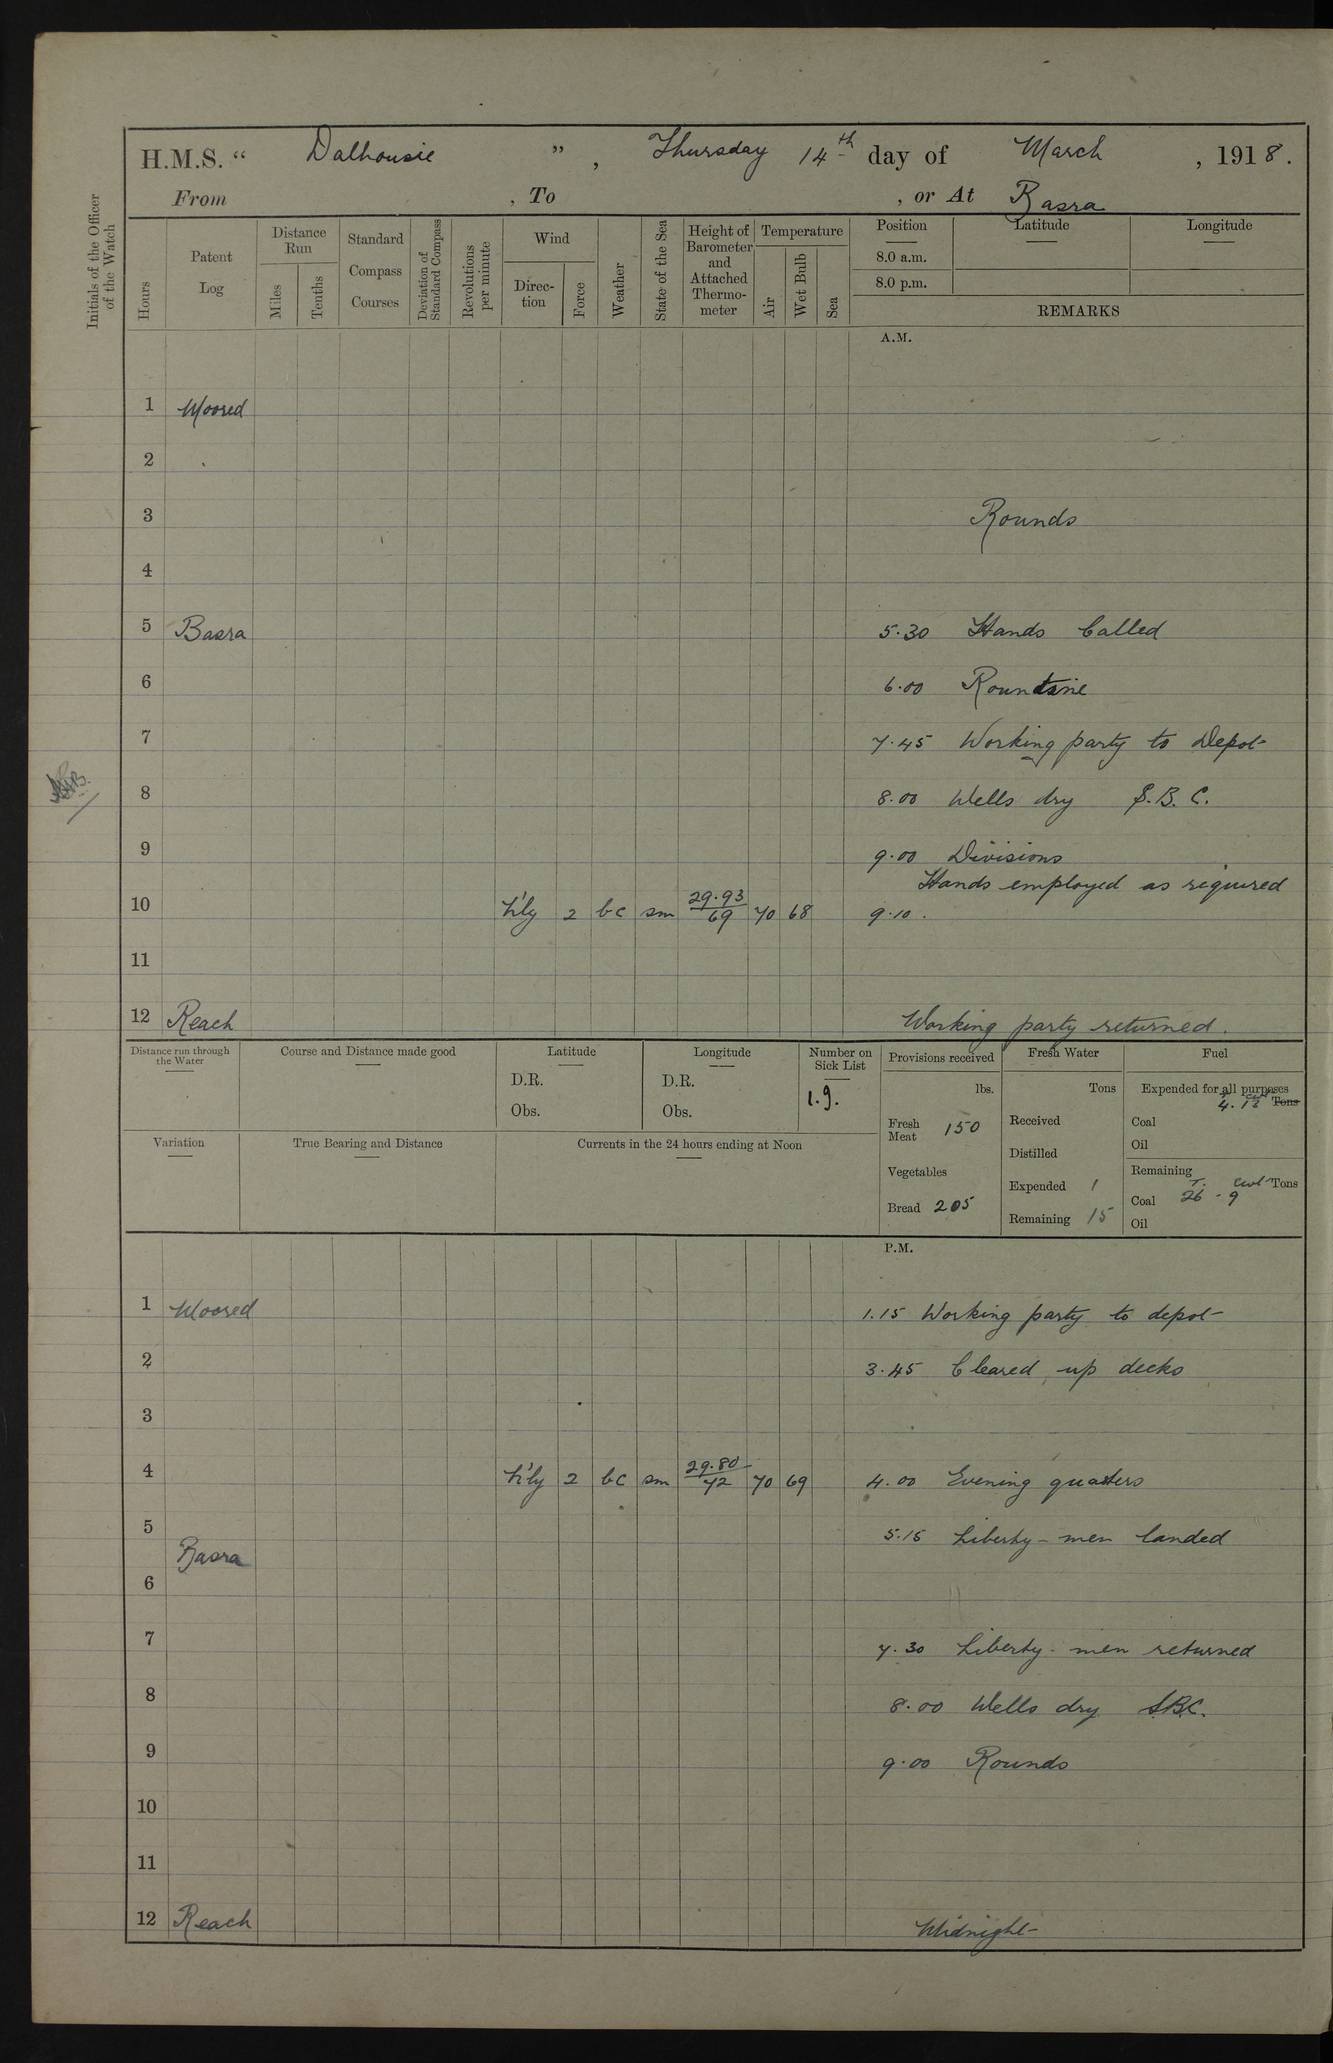 H.M.S. “ Dalhousie ” , Thursday 14th day of March , 1918.
From , To , or At Basra
Initials of the Officer of the Watch
Hours
Patent Log
Distance Run
Miles
Tenths
Standard Compass Courses
Deviation of Standard Compass
Revolutions per minute
Wind
Direc-tion
Force
Weather
State of the Sea
Height of Barometer and Attached Thermo-meter
Temperature
Air
Wet Bulb
Sea
Position Latitude Longitude
8.0 a.m.
8.0 p.m.
REMARKS
A.M.
1 Moored
2
3 Rounds
4
5 Basra 5.30 Hands Called
6 6.00 Rountine
7 7.45 Working party to Depot
8 8.00 Wells dry S.B.C.
9 9.00 Divisions
Hands employed as required
10 2 bc sm 29.93/69 70 68 9.10.
11
12 Reach Working party returned.
Distance run through the Water
Course and Distance made good
Latitude
D.R.
Obs.
Longitude
D.R.
Obs.
Number on Sick List
1.9.
Provisions received
lbs.
Fresh Meat 150
Vegetables
Bread 205
Fresh Water
Tons
Received
Distilled
Expended 1
Remaining 15
Fuel
Expended for all purposes
4. 13 Tons
Coal
Oil
Remaining
T. Cwt Tons
Coal 26 - 9
Oil
Variation
True Bearing and Distance
Currents in the 24 hours ending at Noon
P.M.
1 Moored 1.15 Working party to depot
2 3.45 Cleared up decks
3
4 2 bc sm 29.80/72 70 69 4.00 Evening quarters
5 5.15 Liberty-men landed
Basra
6
7 7.30 Liberty-men returned
8 8.00 Wells dry S.B.C.
9 9.00 Rounds
10
11
12 Reach Midnight